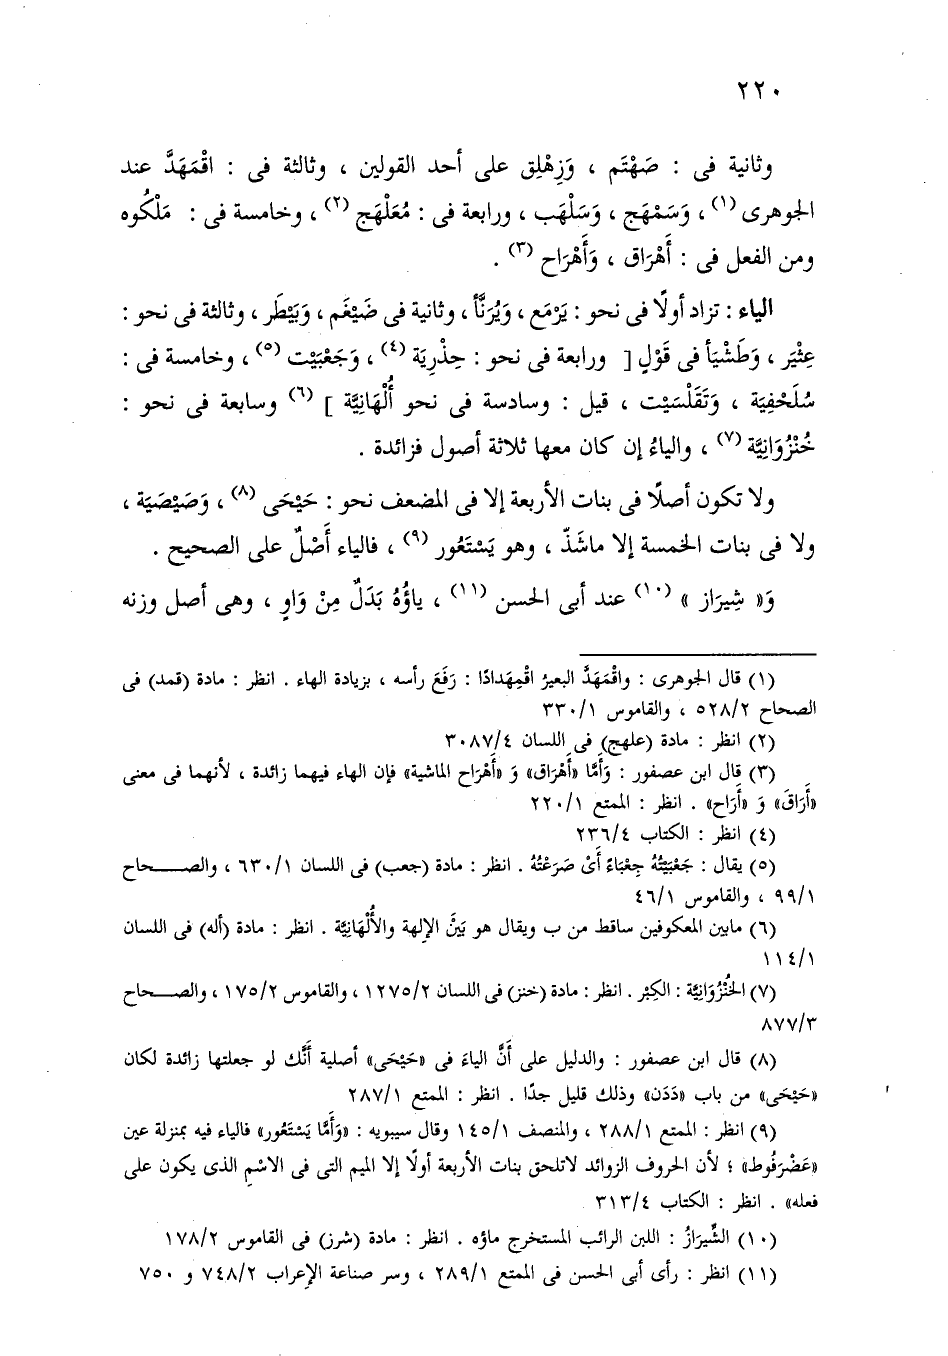 ٢٢٠
وثانية فى : صَهْتَم ، وَزِهْلِق على أحد القولين ، وثالثة فى : اقْمَهَدَّ عند
الجوهرى (١) ، وَسَمْهَج ، وَسَلْهَب ، ورابعة فى : مُعَلْهَج (٢) ، وخامسة فى : مَلْكُوه
ومن الفعل فى : أَهْرَاق ، وَأَهْرَاح (٣) .
الياء : تزاد أولًا فى نحو : يَرْمَع ، وَيُرَنَّأ ، وثانية فى ضَيْغَم ، وَبَيْطَر ، وثالثة فى نحو :
عِثْيَر ، وَطَشْيَأ فى قَوْلٍ [ ورابعة فى نحو : حِذْرِيَة (٤) ، وَجَعْبَيْت (٥) ، وخامسة فى :
سُلَحْفِيَة ، وَتَقَلْسَيْت ، قيل : وسادسة فى نحو أُلْهَانِيَّة ] (٦) وسابعة فى نحو :
خُنْزُوَانِيَّة (٧) ، والياءُ إن كان معها ثلاثة أصول فزائدة .
ولا تكون أصلًا فى بنات الأربعة إلا فى المضعف نحو : حَيْحَى (٨) ، وَصَيْصَيَة ،
ولا فى بنات الخمسة إلا ماشَذّ ، وهو يَسْتَعُور (٩) ، فالياء أَصْلٌ على الصحيح .
وَ« شِيرَاز » (١٠) عند أبى الحسن (١١) ، ياؤُهُ بَدَلٌ مِنْ وَاوٍ ، وهى أصل وزنه
(١) قال الجوهرى : واقْمَهَدَّ البعيرُ اقْمِهْدادًا : رَفَعَ رأسه ، بزيادة الهاء . انظر : مادة (قمد) فى
الصحاح ٥٢٨/٢ ، والقاموس ٣٣٠/١
(٢) انظر : مادة (علهج) فى اللسان ٣٠٨٧/٤
(٣) قال ابن عصفور : وَأَمَّا «أَهْرَاق» وَ «أَهْرَاح الماشية» فإن الهاء فيهما زائدة ، لأنهما فى معنى
«أَرَاقَ» وَ «أَرَاح» . انظر : الممتع ٢٢٠/١
(٤) انظر : الكتاب ٢٣٦/٤
(٥) يقال : جَعْبَيْتُهُ جِعْبَاءً أَىْ صَرَعْتُهُ . انظر : مادة (جعب) فى اللسان ٦٣٠/١ ، والصــــحاح
٩٩/١ ، والقاموس ٤٦/١
(٦) مابين المعكوفين ساقط من ب ويقال هو بَيَّنُ الإلهة والأُلْهَانِيَّة . انظر : مادة (أله) فى اللسان
١١٤/١
(٧) الخُنْزُوَانِيَّة : الكِبْر . انظر : مادة (خنز) فى اللسان ١٢٧٥/٢ ، والقاموس ١٧٥/٢ ، والصــــحاح
٨٧٧/٣
(٨) قال ابن عصفور : والدليل على أَنَّ الياءَ فى «حَيْحَى» أصلية أَنَّك لو جعلتها زائدة لكان
«حَيْحَى» من باب «دَدَن» وذلك قليل جدًا . انظر : الممتع ٢٨٧/١
(٩) انظر : الممتع ٢٨٨/١ ، والمنصف ١٤٥/١ وقال سيبويه : «وَأَمَّا يَسْتَعُور» فالياء فيه بمنزلة عين
«عَضْرَفُوط» ؛ لأن الحروف الزوائد لاتلحق بنات الأربعة أولًا إلا الميم التى فى الاسْمِ الذى يكون على
فعله» . انظر : الكتاب ٣١٣/٤
(١٠) الشِّيرَازُ : اللبن الرائب المستخرج ماؤه . انظر : مادة (شرز) فى القاموس ١٧٨/٢
(١١) انظر : رأى أبى الحسن فى الممتع ٢٨٩/١ ، وسر صناعة الإعراب ٧٤٨/٢ و ٧٥٠